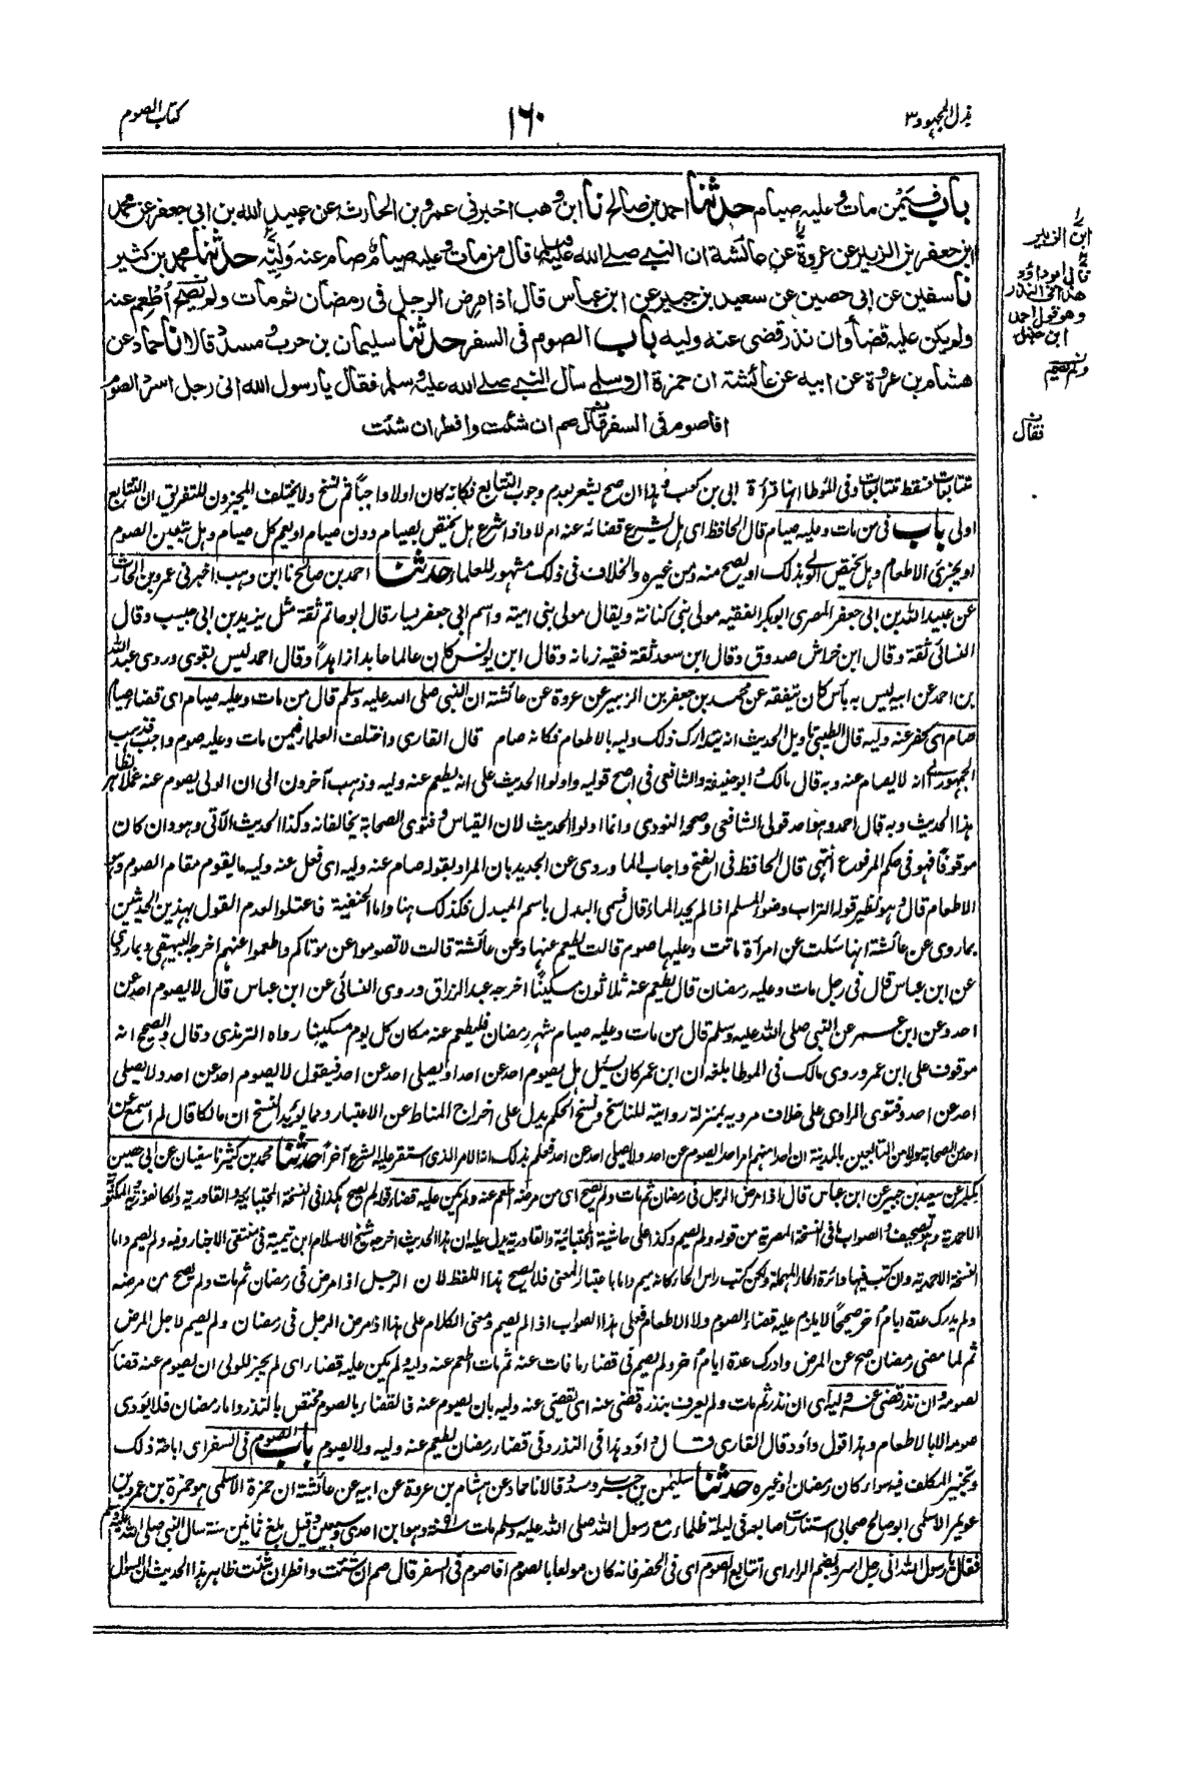 بذل المجهود ٣
١٦٠
كتاب الصوم
باب فيمن مات وعليه صيام حدثنا احمد بن صالح نا ابن وهب اخبرني عمرو بن الحارث عن عبيد الله بن ابي جعفر عن محمد
ابن جعفر بن الزبير عن عروة عن عائشة ان النبي صلى الله عليه وسلم قال من مات وعليه صيام صام عنه وليه حدثنا محمد بن كثير
نا سفين عن ابي حصين عن سعيد بن جبير عن ابن عباس قال اذا مرض الرجل في رمضان ثم مات ولم يصح اطعم عنه
ولم يكن عليه قضاء وان نذر قضى عنه وليه باب الصوم في السفر حدثنا سليمان بن حرب ومسدد قالا نا حماد عن
هشام بن عروة عن ابيه عن عائشة ان حمزة الاسلمي سال النبي صلى الله عليه وسلم فقال يا رسول الله اني رجل اسرد الصوم
افاصوم في السفر قال صم ان شئت وافطر ان شئت
ابن الزبير
قال ابو داؤد
هذا في النذر
وهو قول احمد
ابن حنبل
ولم يصم
فقال
متتابعات فسقط متتابعات وفي الموطا انها قرأة ابي بن كعب وهذا ان صح يشعر بعدم وجوب التتابع فكانه كان اولا واجباً ثم نسخ ولا يختلف المجيزون للتفريق ان التتابع
اولى باب في من مات وعليه صيام قال الحافظ اي هل يشرع قضائه عنه ام لا واذا شرع هل يختص بصيام دون صيام او يعم كل صيام وهل يتعين الصوم
او يجزئ الاطعام وهل يختص الولي بذلك او يصح منه ومن غيره والخلاف في ذلك مشهور للعلماء حدثنا احمد بن صالح نا ابن وهب اخبرني عمرو بن الحارث
عن عبيد الله بن ابي جعفر المصري ابو بكر الفقيه مولى بني كنانة ويقال مولى بني امية واسم ابي جعفر يسار قال ابو حاتم ثقة مثل يزيد بن ابي حبيب وقال
النسائي ثقة وقال ابن خراش صدوق وقال ابن سعد ثقة فقيه زمانه وقال ابن يونس كان عالما عابدا زاهداً وقال احمد ليس بقوى وروى عبد الله
بن احمد عن ابيه ليس به بأس كان يتفقه عن محمد بن جعفر بن الزبير عن عروة عن عائشة ان النبي صلى الله عليه وسلم قال من مات وعليه صيام اي قضاء صيام
صام اي كفر عنه وليه قال الطيبي تاويل الحديث انه يتدارك ذلك وليه بالاطعام فكانه صام قال القاري واختلف العلماء فيمن مات وعليه صوم واجب فذهب
الجمهور الى انه لا يصام عنه وبه قال مالك وابو حنيفة والشافعي في اصح قوليه واولوا الحديث على انه يطعم عنه وليه وذهب آخرون الى ان الولي يصوم عنه عملا بظاهر
هذا الحديث وبه قال احمد وهو احد قولي الشافعي وصححه النووي وانما اولوا الحديث لان القياس وفتوى الصحابة يخالفانه وكذا الحديث الآتي وهو وان كان
موقوفا فهو في حكم المرفوع انتهى قال الحافظ في الفتح واجاب الماوردي عن الجديد بان المراد بقوله صام عنه وليه اي فعل عنه وليه ما يقوم مقام الصوم وهو
الاطعام قال وهو نظير قوله التراب وضوء المسلم اذا لم يجد الماء قال فسمى البدل باسم المبدل فكذلك هنا واما الحنفية فاعتلوا لعدم القول بهذين الحديثين
بما روى عن عائشة انها سئلت عن امرأة ماتت وعليها صوم قالت يطعم عنها وعن عائشة قالت لا تصوموا عن موتاكم واطعموا عنهم اخرجه البيهقي وبما روى
عن ابن عباس قال في رجل مات وعليه رمضان قال يطعم عنه ثلاثون مسكينًا اخرجه عبد الرزاق وروى النسائي عن ابن عباس قال لا يصوم احد عن
احد وعن ابن عمر عن النبي صلى الله عليه وسلم قال من مات وعليه صيام شهر رمضان فليطعم عنه مكان كل يوم مسكينا رواه الترمذي وقال والصحيح انه
موقوف على ابن عمر وروى مالك في الموطا بلغه ان ابن عمر كان يسئل هل يصوم احد عن احد او يصلي احد عن احد فيقول لا يصوم احد عن احد ولا يصلي
احد عن احد وفتوى الراوي على خلاف مرويه بمنزلة روايته للناسخ ونسخ الحكم يدل على اخراج المناط عن الاعتبار ومما يؤيد النسخ ان مالكا قال لم اسمع عن
احد من الصحابة ولا من التابعين بالمدينة ان احدا منهم امر احدا يصوم عن احد ولا يصلي احد عن احد فعلم بذلك انه الامر الذي استقر عليه الشرع آخراً حدثنا محمد بن كثير نا سفيان عن ابي حصين
عن سعيد بن جبير عن ابن عباس قال اذا مرض الرجل في رمضان ثم مات ولم يصح اي من مرضه اطعم عنه ولم يكن عليه قضاء قوله لم يصح هكذا في النسخة المجتبائية والقادرية والكانفورية والمكتوبة
الاحمدية وهو تصحيف والصواب ما في النسخة المصرية من قوله ولم يصم وكذا على حاشية المجتبائية والقادرية يدل عليه ان هذا الحديث اخرجه شيخ الاسلام ابن تيمية في منتقى الاخبار وفيه ولم يصم واما
النسخة الاحمدية وان كتب فيها دائرة الحاء المهملة ولكن كتب راس الحاء كانه ميم واما باعتبار المعنى فلا يصح هذا اللفظ لان الرجل اذا مرض في رمضان ثم مات ولم يصح من مرضه
ولم يدرك عدة ايام أخر صحيحًا لا يلزم عليه قضاء الصوم ولا الاطعام فعلى هذا الصواب اذا لم يصم ومعنى الكلام على هذا اذا مرض الرجل في رمضان ولم يصم لاجل المرض
ثم لما مضى رمضان صح عن المرض وادرك عدة ايام أخر ولم يصم في قضاء ما فات عنه ثم مات اطعم عنه وليه ولم يكن عليه قضاء اي لم يجز للولي ان يصوم عنه قضاء
لصومه وان نذر قضى عنه وليه اي ان نذر ثم مات ولم يعرف بنذره قضى عنه اي يقضي عنه وليه بان يصوم عنه فالقضاء بالصوم مختص بالنذر واما رمضان فلا يؤدى
صومه الا بالاطعام وهذا قول داؤد قال القاري قال داؤد هذا في النذر وفي قضاء رمضان يطعم عنه وليه ولا يصوم باب الصوم في السفر اي اباحة ذلك
وتخيير المكلف فيه سواء كان رمضان او غيره حدثنا سليمن بن حرب ومسدد قالا نا حماد عن هشام بن عروة عن ابيه عن عائشة ان حمزة الاسلمي هو حمزة بن عمرو بن
عويمر الاسلمي ابو صالح صحابي استنارت اصابعه في ليلة ظلماء مع رسول الله صلى الله عليه وسلم مات سنة ٦١ وهو ابن احدى وسبعين وقيل بلغ ثمانين سنة سال النبي صلى الله عليه وسلم
فقال يا رسول الله اني رجل اسرد بضم الراء اي اتتابع الصوم اي في الحضر فانه كان مولعا بالصوم افاصوم في السفر قال صم ان شئت وافطر ان شئت ظاهر هذا الحديث ان السؤال